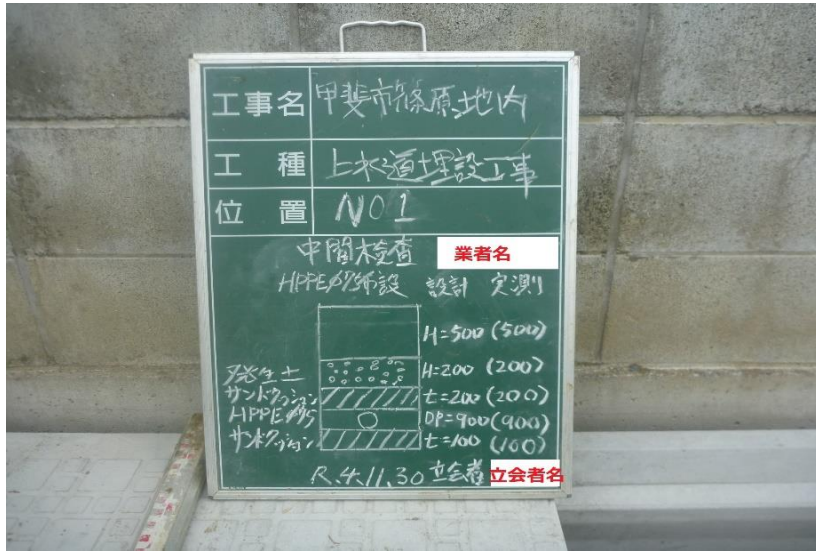 工事名 甲斐市篠原地内
工種 上水道埋設工事
位置 NO1
中間検査 業者名
HPPEφ75布設 設計 実測
H=500 (500)
発生土 H=200 (200)
サンドクッション t=200 (200)
HPPEφ75 DP=900 (900)
サンドクッション t=100 (100)
R.4.11.30 立会者 立会者名